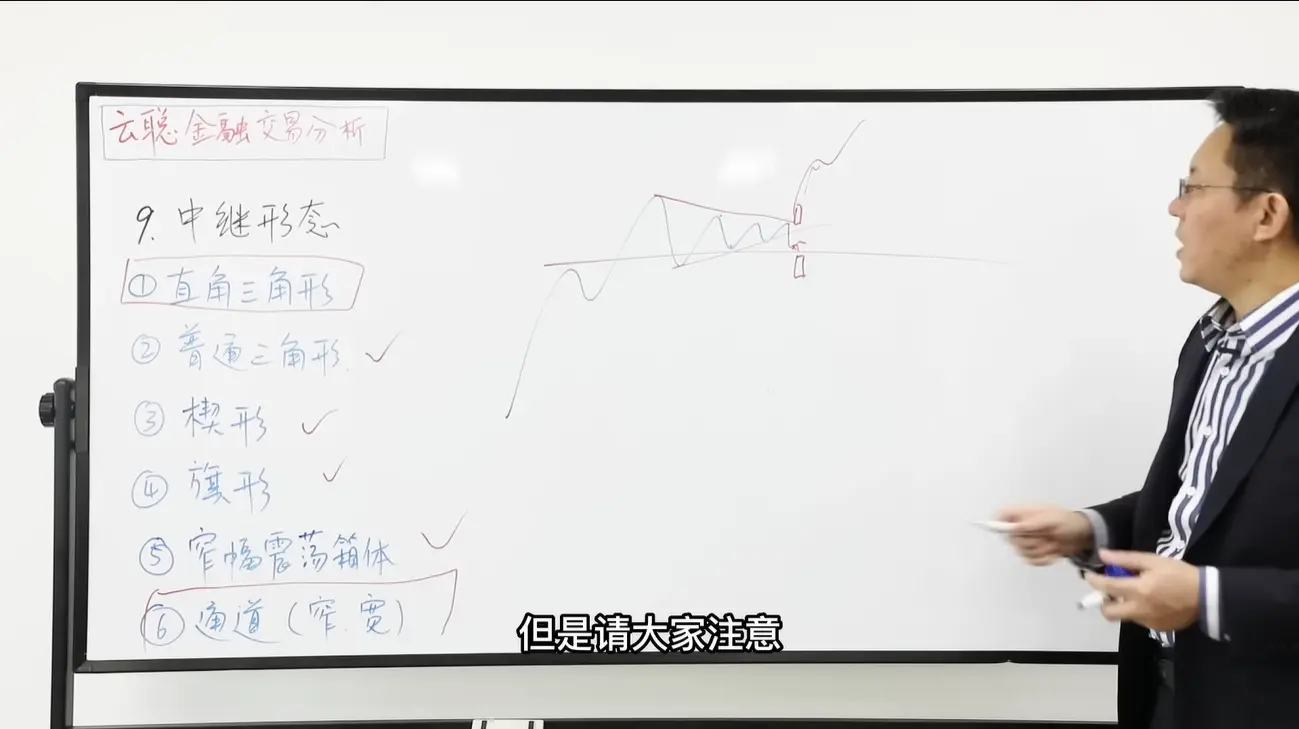 云聪金融交易分析
9. 中继形态
① 直角三角形
② 普通三角形
③ 楔形
④ 旗形
⑤ 窄幅震荡箱体
⑥ 通道(窄.宽)
但是请大家注意